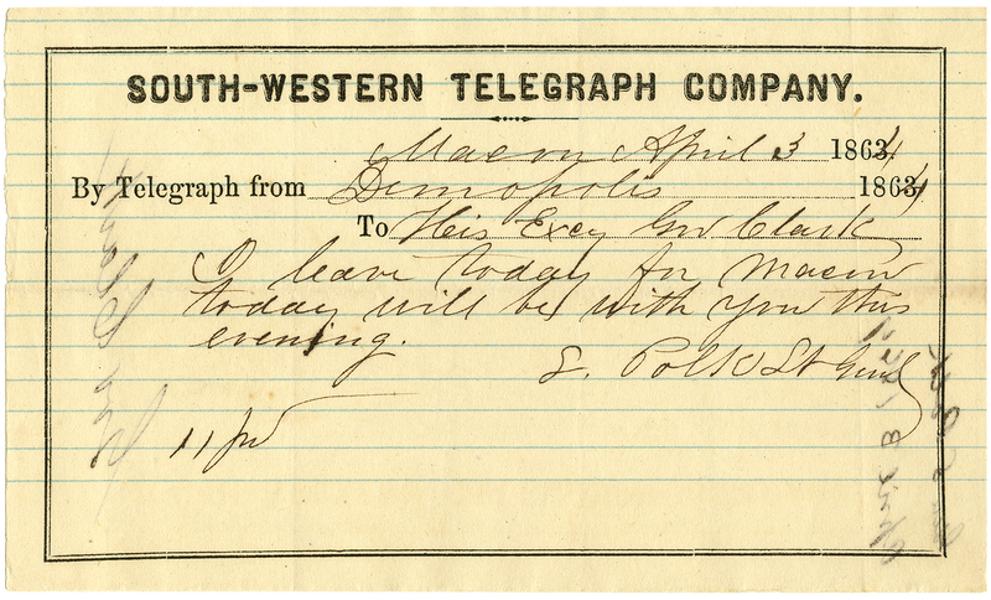 SOUTH-WESTERN TELEGRAPH COMPANY.
Macon April 3 1864
By Telegraph from Demopolis 1864
To His Excy Gov Clark
I leave today for Macon
today will be with you this
evening.
L. Polk Lt Genl
11 pd